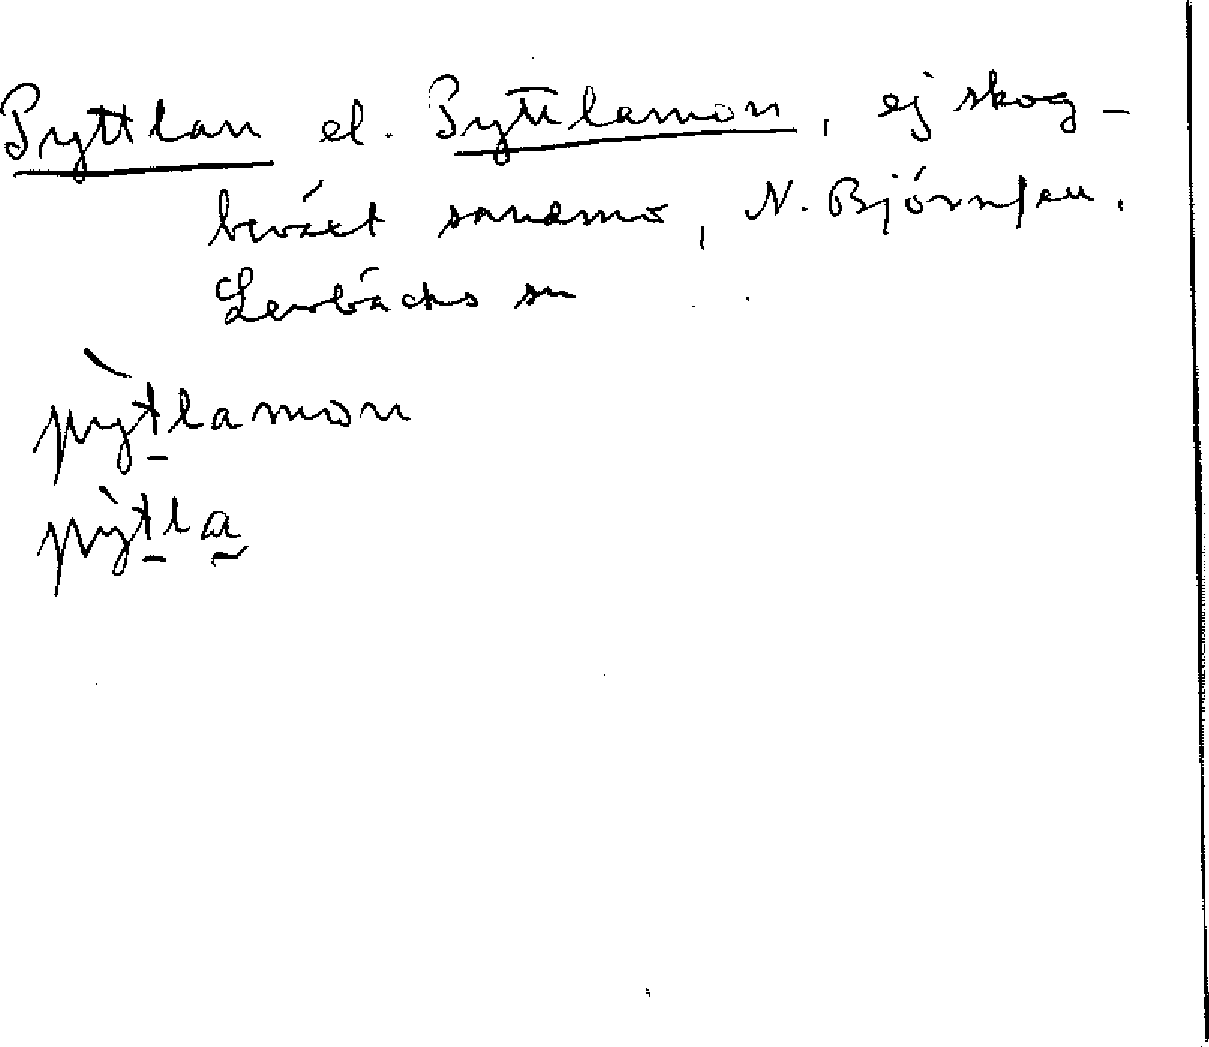 Pyttlan el. Pyttlamon, ej skog-
beväxt sandmo, N. Björnfall.
Lerbäcks sn
pỳtlamon
pỳtla